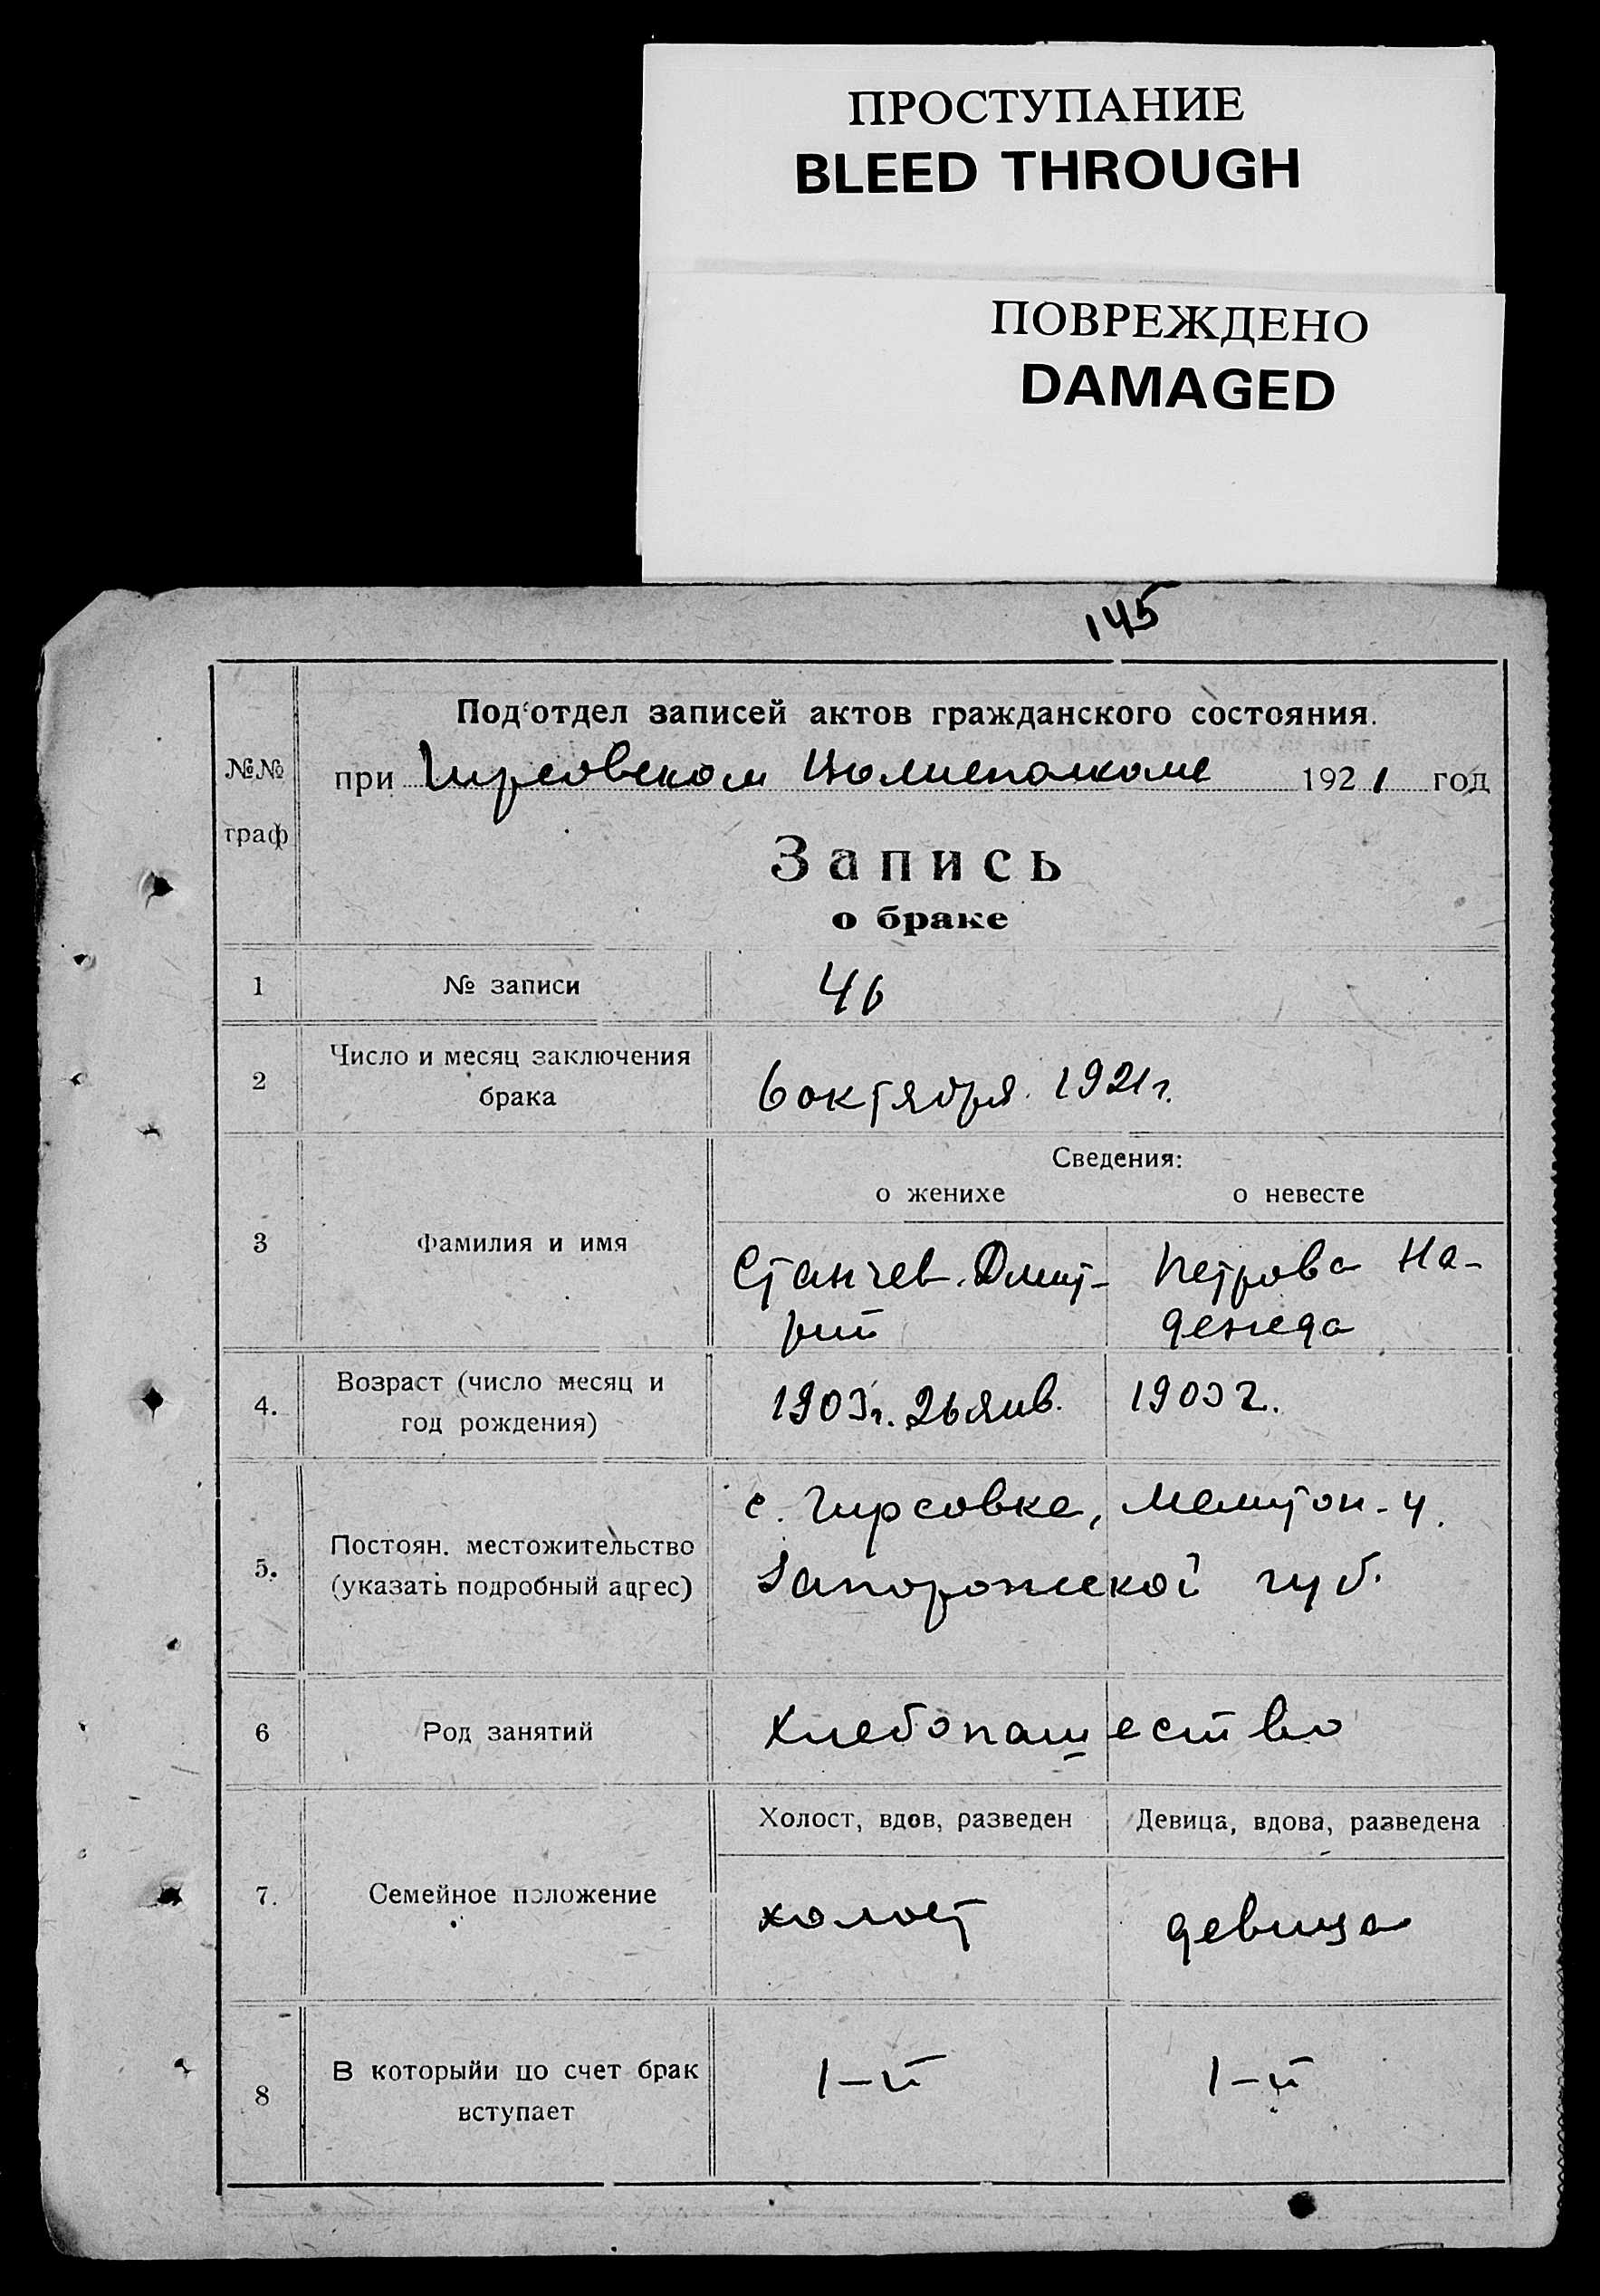 ПРОСТУПАНИЕ
BLEED THROUGH
ПОВРЕЖДЕНО
DAMAGED
145
Под'отдел записей актов гражданского состояния.
№№
граф
при Гирсовском Волисполкоме 1921 год
Запись
о браке
1 № записи 46
2 Число и месяц заключения
брака
6 октября 1921 г.
Сведения:
о женихе о невесте
3 Фамилия и имя
Станчев Дмит- Петрова На-
рий дежда
4. Возраст (число месяц и
год рождения)
1903 г. 26 янв. 1903 г.
5. Постоян. местожительство
(указать подробный адрес)
с. Гирсовка, Мелитоп. у.
Запорожской губ.
6 Род занятий Хлебопашество
Холост, вдов, разведен Девица, вдова, разведена
7. Семейное положение
холост девица
8 В которыйи по счет брак
вступает
1-й 1-й